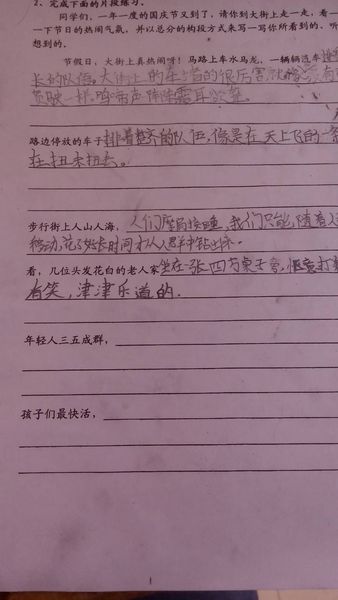 2、完成下面的片段练习。
同学们,一年一度的国庆节又到了,请你到大街上走一走,看一
一下节日的热闹气氛,并以总分的构段方式来写一写你所看到的、听
想到的。
节假日,大街上真热闹呀!马路上车水马龙,一辆辆汽车排
长的队伍。大街上的车堵的很厉害,就
一样,鸣笛声阵阵震耳欲聋。
路边停放的车子排着整齐的队伍,像是在天上飞的一条
在扭来扭去。
步行街上人山人海,人们摩肩接踵,我们只能随着人
移动,花了好长时间才从人群中钻出来。
看,几位头发花白的老人家坐在一张四方桌子旁,惬意打
有笑,津津乐道的.
年轻人三五成群,
孩子们最快活,
1